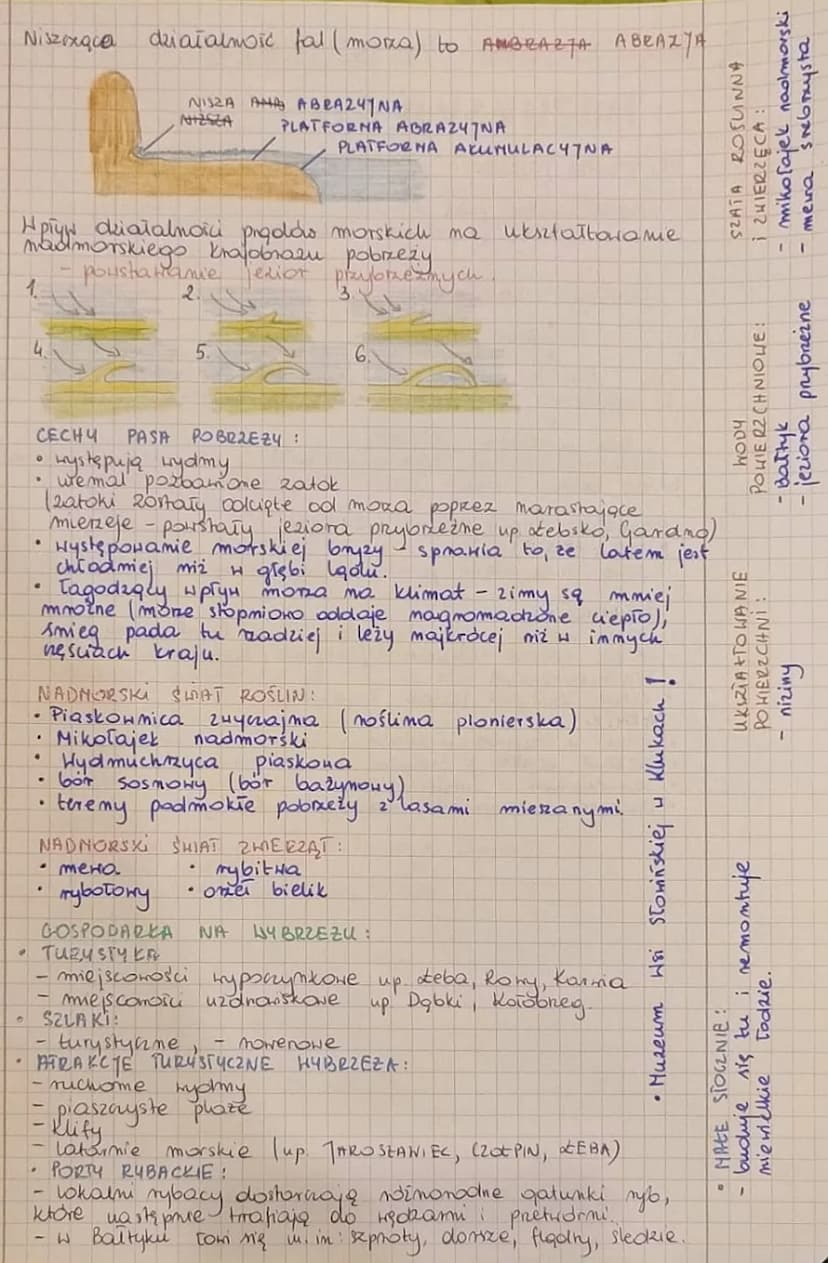 Niszcząca działalność fal (morza) to AMBRAZJA ABRAZJA
NISZA ANA ABRAZYJNA
NISZSZA
PLATFORMA ABRAZYJNA
PLATFORMA AKUMULACYJNA
Wpływ działalności prądów morskich na ukształtowanie
nadmorskiego krajobrazu pobrzeży
- powstawanie jezior przybrzeżnych.
1. 2. 3.
4. 5. 6.
CECHY PASA POBRZEŻY:
• występują wydmy
• niemal pozbawione zatok
(zatoki zostały odcięte od morza poprzez narastające
mierzeje - powstały jeziora przybrzeżne np. Łebsko, Gardno)
• występowanie morskiej bryzy - sprawia to, że latem jest
chłodniej niż w głębi lądu.
• łagodzący wpływ morza na klimat - zimy są mniej
mroźne (morze stopniowo oddaje nagromadzone ciepło),
śnieg pada tu rzadziej i leży najkrócej niż w innych
częściach kraju.
NADMORSKI ŚWIAT ROŚLIN:
• Piaskownica zwyczajna (roślina pionierska)
• Mikołajek nadmorski
• Wydmuchrzyca piaskowa
• bór sosnowy (bór bażynowy)
• tereny podmokłe pobrzeży z lasami mieszanymi.
NADMORSKI ŚWIAT ZWIERZĄT:
• mewa • rybitwa
• rybołowy • orzeł bielik
GOSPODARKA NA WYBRZEŻU:
• TURYSTYKA
- miejscowości wypoczynkowe np. Łeba, Rowy, Karwia
- miejscowości uzdrowiskowe np. Dąbki, Kołobrzeg.
• SZLAKI:
- turystyczne, - rowerowe
• ATRAKCJE TURYSTYCZNE WYBRZEŻA:
- ruchome wydmy
- piaszczyste plaże
- klify
- latarnie morskie (np. JAROSŁAWIEC, CZOŁPIN, ŁEBA)
• PORTY RYBACKIE:
- lokalni rybacy dostarczają różnorodne gatunki ryb,
które następnie trafiają do wędzarni i przetwórni.
- w Bałtyku łowi się m.in: szproty, dorsze, flądry, śledzie.
• Muzeum Wsi Słowińskiej w Klukach!
SZATA ROŚLINNA
I ZWIERZĘCA:
- mikołajek nadmorski
- mewa srebrzysta
WODY
POWIERZCHNIOWE:
- Bałtyk
- jeziora przybrzeżne
UKSZTAŁTOWANIE
POWIERZCHNI:
- niziny
• MAŁE STOCZNIE:
- buduje się tu i remontuje
niewielkie łodzie.